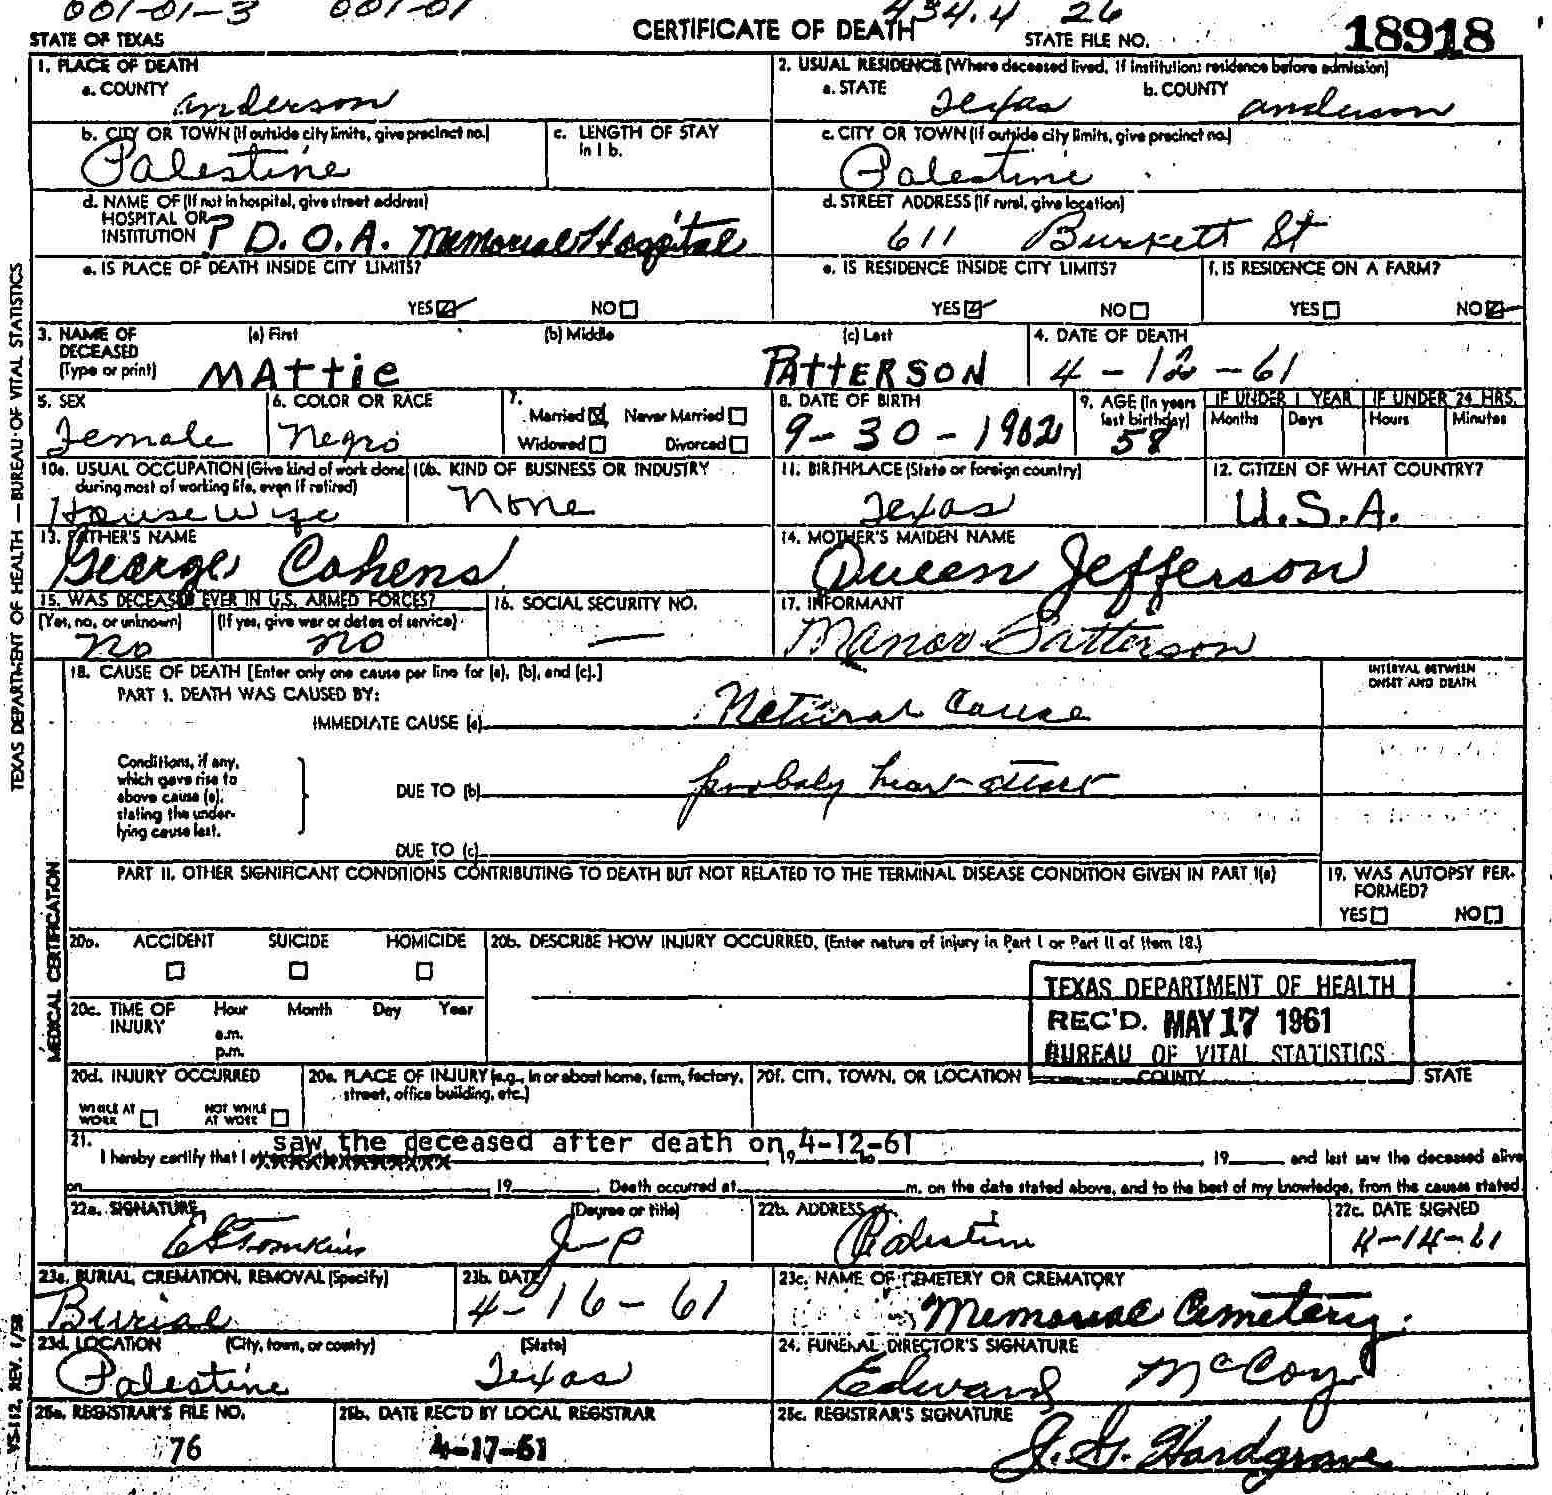 001-01-3 001-01 434.4 26
STATE OF TEXAS CERTIFICATE OF DEATH STATE FILE NO. 18918
1. PLACE OF DEATH
a. COUNTY Anderson
2. USUAL RESIDENCE (Where deceased lived, if institution: residence before admission)
a. STATE Texas b. COUNTY Anderson
b. CITY OR TOWN (If outside city limits, give precinct no.) Palestine
c. LENGTH OF STAY in 1 b.
c. CITY OR TOWN (If outside city limits, give precinct no.) Palestine
d. NAME OF (If not in hospital, give street address)
HOSPITAL OR
INSTITUTION P D.O.A. Memorial Hospital
d. STREET ADDRESS (If rural, give location)
611 Burkett St
e. IS PLACE OF DEATH INSIDE CITY LIMITS?
YES NO
e. IS RESIDENCE INSIDE CITY LIMITS?
YES NO
f. IS RESIDENCE ON A FARM?
YES NO
3. NAME OF DECEASED (Type or print)
(a) First (b) Middle (c) Last
MAttie PATTERSON
4. DATE OF DEATH
4-12-61
5. SEX
Female
6. COLOR OR RACE
Negro
7.
Married Never Married
Widowed Divorced
8. DATE OF BIRTH
9-30-1902
9. AGE (In years last birthday)
58
IF UNDER 1 YEAR IF UNDER 24 HRS.
Months Days Hours Minutes
10a. USUAL OCCUPATION (Give kind of work done during most of working life, even if retired)
House Wife
10b. KIND OF BUSINESS OR INDUSTRY
None
11. BIRTHPLACE (State or foreign country)
Texas
12. CITIZEN OF WHAT COUNTRY?
U.S.A.
13. FATHER'S NAME
George Cohens
14. MOTHER'S MAIDEN NAME
Queen Jefferson
15. WAS DECEASED EVER IN U.S. ARMED FORCES?
(Yes, no, or unknown) (If yes, give war or dates of service)
No no
16. SOCIAL SECURITY NO.
—
17. INFORMANT
Manor Patterson
18. CAUSE OF DEATH [Enter only one cause per line for (a), (b), and (c).]
INTERVAL BETWEEN ONSET AND DEATH
PART I. DEATH WAS CAUSED BY:
IMMEDIATE CAUSE (a) Natural Cause
Conditions, if any, which gave rise to above cause (a), stating the underlying cause last.
DUE TO (b) probaly heart attact
DUE TO (c)
PART II. OTHER SIGNIFICANT CONDITIONS CONTRIBUTING TO DEATH BUT NOT RELATED TO THE TERMINAL DISEASE CONDITION GIVEN IN PART I(a)
19. WAS AUTOPSY PERFORMED?
YES NO
20a. ACCIDENT SUICIDE HOMICIDE
20b. DESCRIBE HOW INJURY OCCURRED. (Enter nature of injury in Part I or Part II of Item 18.)
20c. TIME OF INJURY
Hour Month Day Year
a.m.
p.m.
TEXAS DEPARTMENT OF HEALTH
REC'D. MAY 17 1961
BUREAU OF VITAL STATISTICS
20d. INJURY OCCURRED
WHILE AT WORK NOT WHILE AT WORK
20e. PLACE OF INJURY (e.g., in or about home, farm, factory, street, office building, etc.)
20f. CITY, TOWN, OR LOCATION COUNTY STATE
21. saw the deceased after death on 4-12-61
I hereby certify that I xxxxxxxxxxxxxxx 19 to , 19 and last saw the deceased alive
on , 19 . Death occurred at m. on the date stated above, and to the best of my knowledge, from the causes stated.
22a. SIGNATURE (Degree or title)
E E Tomkins J P
22b. ADDRESS
Palestine
22c. DATE SIGNED
4-14-61
23a. BURIAL, CREMATION, REMOVAL (Specify)
Burial
23b. DATE
4-16-61
23c. NAME OF CEMETERY OR CREMATORY
Memorial Cemetery
23d. LOCATION (City, town, or county) (State)
Palestine Texas
24. FUNERAL DIRECTOR'S SIGNATURE
Edward McCoy
25a. REGISTRAR'S FILE NO.
76
25b. DATE REC'D BY LOCAL REGISTRAR
4-17-61
25c. REGISTRAR'S SIGNATURE
J. G. Hardgrave
TEXAS DEPARTMENT OF HEALTH — BUREAU OF VITAL STATISTICS
MEDICAL CERTIFICATION
VS-112, REV. 1/58